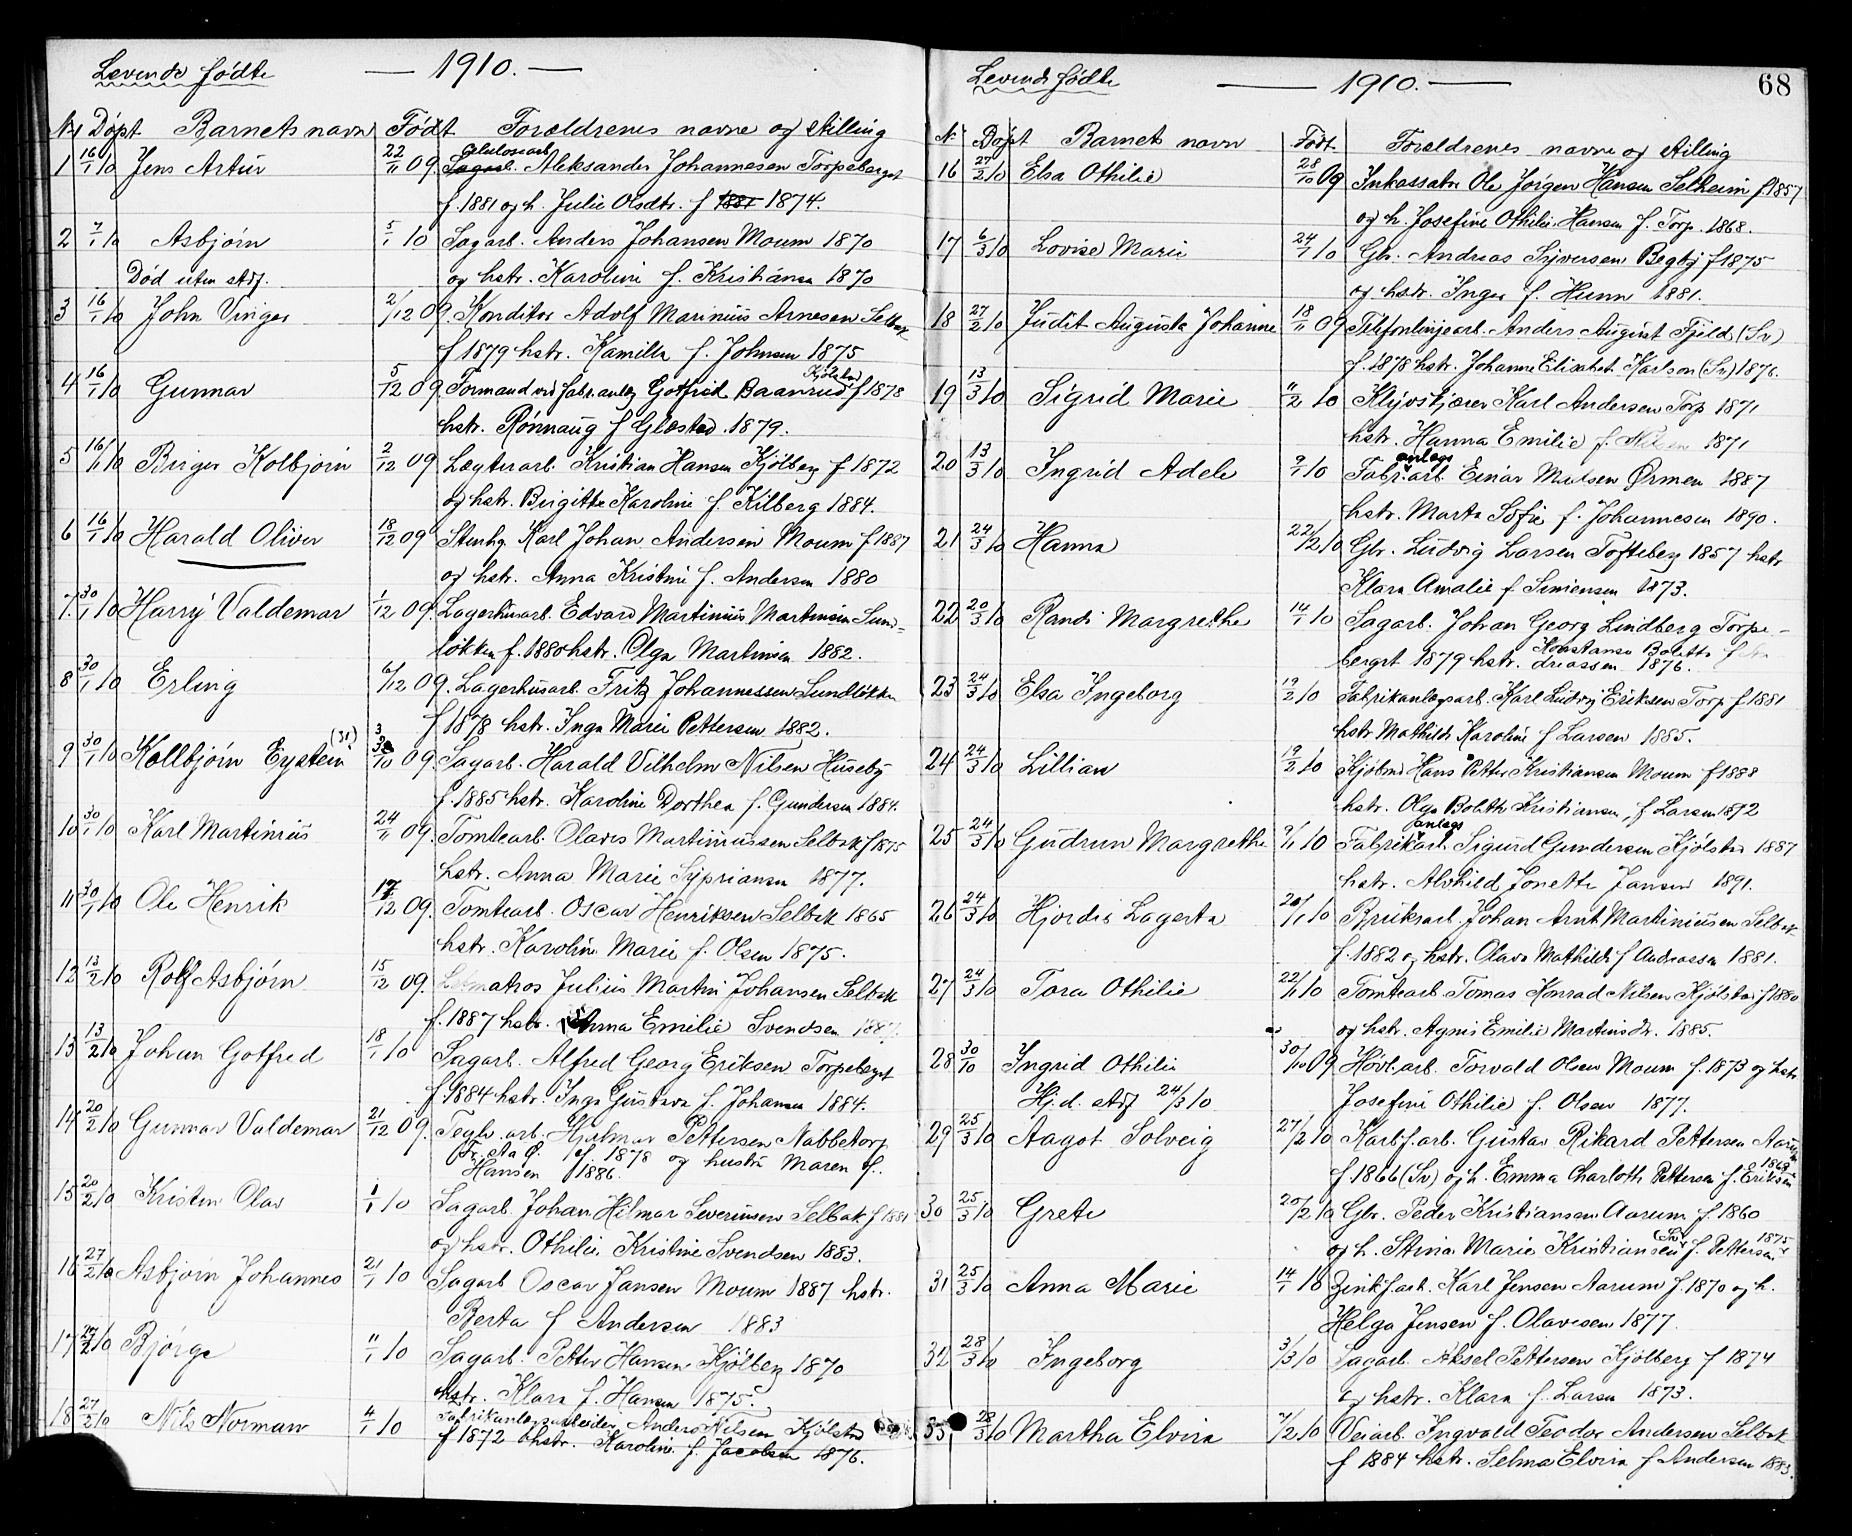 Levende fødte — 1910. —
No Døpt Barnets navn Født Forældrenes navne og stilling
1 16/1 10 Jens Artur 22/11 09. Celulosearb. Aleksander Johannesen Torpeberget
f. 1881 og h. Julie Olsdtr. f 1881 1874.
2 7/1 10 Asbjørn 5/1 10 Sagarb. Anders Johansen Moum 1870
Død uten Adf. og hstr. Karoline f. Kristiansen 1870
3 16/1 10 John Vinger 2/12 09. Konditor Adolf Marinius Arnesen Selbak
f 1879 hstr. Kamilla f. Johnsen 1875
4 16/1 10 Gunnar 5/12 09 Formand ved fabr.anlæg Gotfred Baanrud Kjølstad f 1878
hstr. Rønnaug f Glæstad. 1879.
5 16/1 10 Birger Kolbjørn 2/12 09 Lægterarb. Kristian Hansen Kjølberg f 1872
og hstr. Birgitte Karoline f. Kilberg 1884.
6 16/1 10 Harald Oliver 18/12 09 Stenhg. Karl Johan Andersen Moum f 1887
og hstr. Anna Kristine f. Andersen 1880
7 30/1 10 Harry Valdemar 1/12 09. Lagerhusarb. Edvard Martinius Martinsen Sund-
løkken f. 1880 hstr. Olga Martinsen 1882.
8 30/1 10 Erling 6/12 09. Lagerhusarb. Fritz Johannessen Sundløkken
f 1878 hstr. Inga Marie Pettersen 1882.
9 30/1 10 Kollbjørn Eystein (31) 30/10 09 Sagarb. Harald Vilhelm Nilsen Huseby
f. 1885 hstr. Karoline Dorthea f. Gundersen 1884.
10 30/1 10 Karl Martinius 24/11 09. Tomtearb. Olaves Martiniussen Selbak f 1875
hstr. Anna Marie Syprianen 1877.
11 30/1 10 Ole Henrik 17/12 09. Tomtearb. Oscar Henriksen Selbak 1865
hstr. Karoline Marie f. Olsen 1875.
12 13/2 10 Rolf Asbjørn 15/12 09. Letmatros Julius Martin Johansen Selbak
f. 1887 hstr. Anna Emilie Svendsen 1887.
13 13/2 10 Johan Gotfred 18/1 10 Sagarb. Alfred Georg Eriksen Torpeberget
f. 1884 hstr. Inga Gustava f. Johansen 1884.
14 20/2 10 Gunnar Valdemar 21/12 09. Teglv.arb. Hjalmar Pettersen Nabbetorp
Fr. Aa Ø. f. 1878 og hustru Maren f.
Hansen 1886.
15 20/2 10 Kristen Olav 1/1 10 Sagarb. Johan Hilmar Severinsen Selbak f 1881
og hstr. Othilie Kristine Svendsen 1883.
16 27/2 10 Asbjørn Johannes 21/1 10 Sagarb Oscar Jansen Moum 1887 hstr.
Berta f Andersen 1883
17 27/2 10 Bjørge 11/1 10 Sagarb. Petter Hansen Kjølberg 1870
hstr. Klara f. Hansen 1875.
18 27/2 10 Nils Norman 4/1 10 Fabrikanlægsarbeider Anders Nilsen Kjølstad
f 1872 hstr. Karoline f. Jacobsen 1876.
Levende fødte — 1910. — 68
No Døpt Barnets navn Født Forældrenes navne og stilling
16 27/2 10 Elsa Othilie 28/10 09 Inkassator Ole Jørgen Hansen Selheim f 1857
og h. Josefine Othilie Hansen f. Torp. 1868.
17 6/3 10 Lovise Marie 24/1 10 Gbr. Andreas Syversen Begby f 1875
og hstr. Inger f. Hunn 1881.
18 27/2 10 Judit Augusta Johanne 18/11 09 Telefonlinjearb. Anders August Fjeld (Sv)
f. 1878 hstr. Johanne Elisabet Karlson (Sv) 1876.
19 13/3 10 Sigrid Marie 11/2 10 Klyvskjærer Karl Andersen Torp 1871
hstr. Hanna Emilie f. Nilsen 1871
20 13/3 10 Ingrid Adele 9/1 10 Fabr.anlegsarb. Einar Madsen Ørmen 1887
hstr. Marta Sofie f. Johannesen 1890.
21 24/3 10 Hanna 22/2 10 Gbr. Ludvig Larsen Tofteberg 1857 hstr
Klara Amalie f Simensen 1873.
22 20/3 10 Randi Margrethe 14/1 10 Sagarb. Johan Georg Lindberg Torpe-
berget 1879 hstr. Konstanse Bolette f An
dreassen 1876.
23 24/3 10 Elsa Ingeborg 19/2 10 Fabrikanlægsarb. Karl Ludvig Eriksen Torp f 1881
hstr Mathilde Karoline f Larsen 1885.
24 24/3 10 Lillian 19/2 10 Kjøbmd Hans Petter Kristiansen Moum f 1888
hstr. Olga Bolette Kristiansen, f Larsen 1892
25 24/3 10 Gudrun Margrethe 9/1 10 Fabrikanlegsarb. Sigurd Gundersen Kjølstad 1887
hstr. Alvhild Jonette Jansen 1891.
26 24/3 10 Hjordis Lagerta 20/1 10 Bruksarb. Johan Arnt Martiniusen Selbak
f. 1882 og hstr. Olava Mathilde f Andreassen 1881.
27 24/3 10 Tora Othilie 22/1 10 Tomtearb. Tomas Konrad Nilsen Kjølstad f 1880
og hstr. Agnes Emilie Martinsdtr. 1885.
28 30/10 Ingrid Othilie 30/10 09 Høvl.arb. Torvald Olsen Moum f. 1873 og hstr
Hj.d. Adf 24/3 10 Josefine Othilie f. Olsen 1877.
29 25/3 10 Aagot Solveig 27/2 10 Karb.f.arb. Gustav Rikard Pettersen Aarum
f 1866 (Sv) og h. Emma Charloth Pettersen f. Eriksen 1868
30 25/3 10 Grete 20/2 10 Gbr. Peder Kristiansen Aarum f. 1860
og h. Stina Marie Kristiansen (Sv) f. Pettersen 1875
31 25/3 10 Anna Marie 14/1 10 Zinkf.arb. Karl Jensen Aarum f. 1870 og h.
Helga Jensen f. Olavesen 1877.
32 28/3 10 Ingeborg 3/3 10 Sagarb. Aksel Pettersen Kjølberg f 1874
og hstr. Klara f. Larsen 1873.
33 28/3 10 Martha Elvira 7/2 10 Veiarb. Ingvald Teodor Andersen Selbak
f 1884 hstr. Selma Elvira f Andersen 1883.